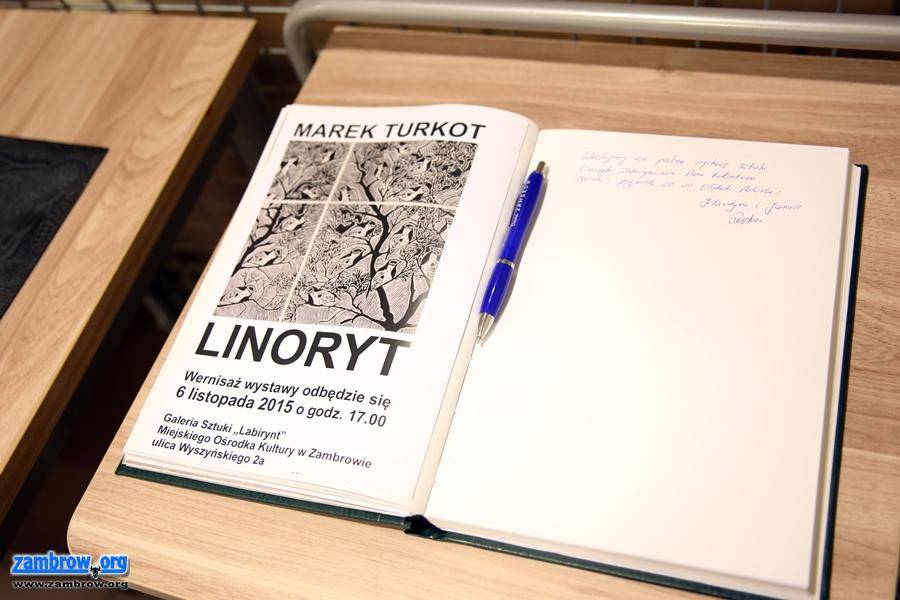 MAREK TURKOT
LINORYT
Wernisaż wystawy odbędzie się
6 listopada 2015 o godz. 17.00
Galeria Sztuki „Labirynt”
Miejskiego Ośrodka Kultury w Zambrowie
ulica Wyszyńskiego 2a
wystawę sztuki
Pana talentem
i Janusz
zambrow.org
www.zambrow.org